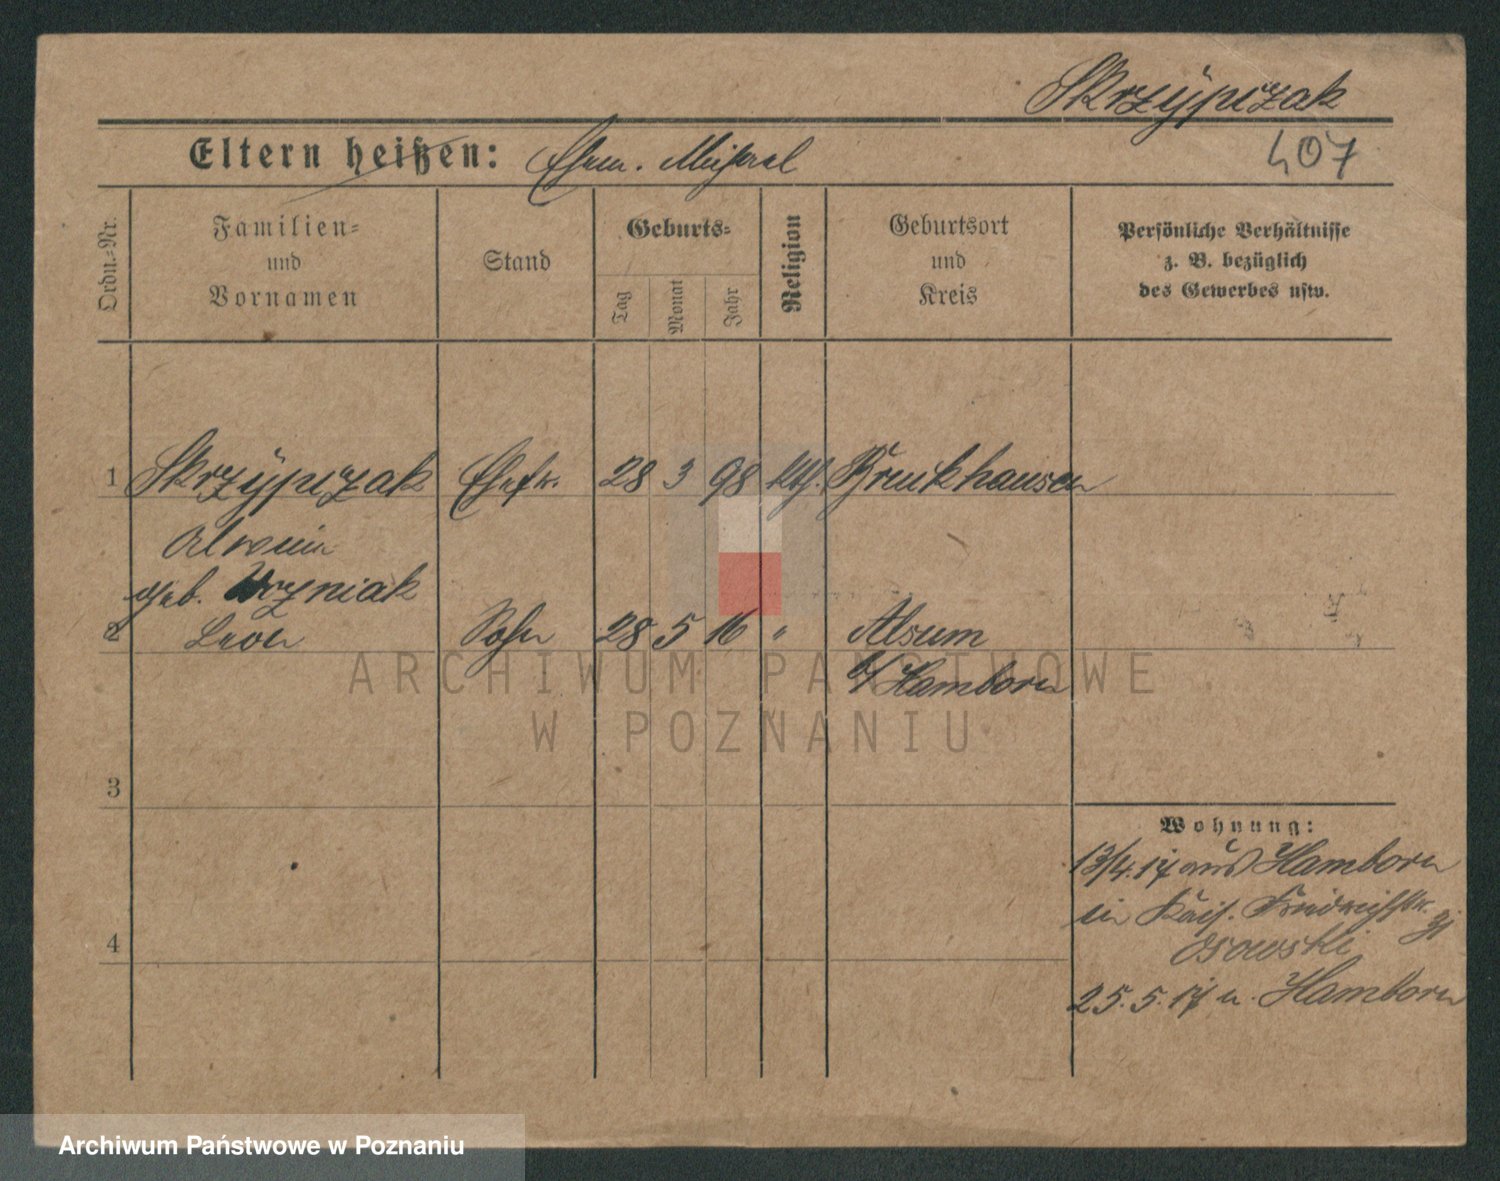 Skrzÿpczak
407
Eltern heißen: Ehem. Michael
Ordn.-Nr.
Familien-
und
Vornamen
Stand
Geburts-
Tag
Monat
Jahr
Religion
Geburtsort
und
Kreis
Persönliche Verhältnisse
z. B. bezüglich
des Gewerbes usw.
1 Skrzÿpczak Ehefr. 28 3 98 kth. Bruckhausen
Alwine
geb. Wozniak
2 Leon Sohn 28 5 16 " Alsum
b/Hamborn
3
4
Wohnung:
13/4.17 aus Hamborn
in Kais. Friedrichstr.
Osowski
25.5.17 n. Hamborn
ARCHIWUM PAŃSTWOWE
W POZNANIU
Archiwum Państwowe w Poznaniu